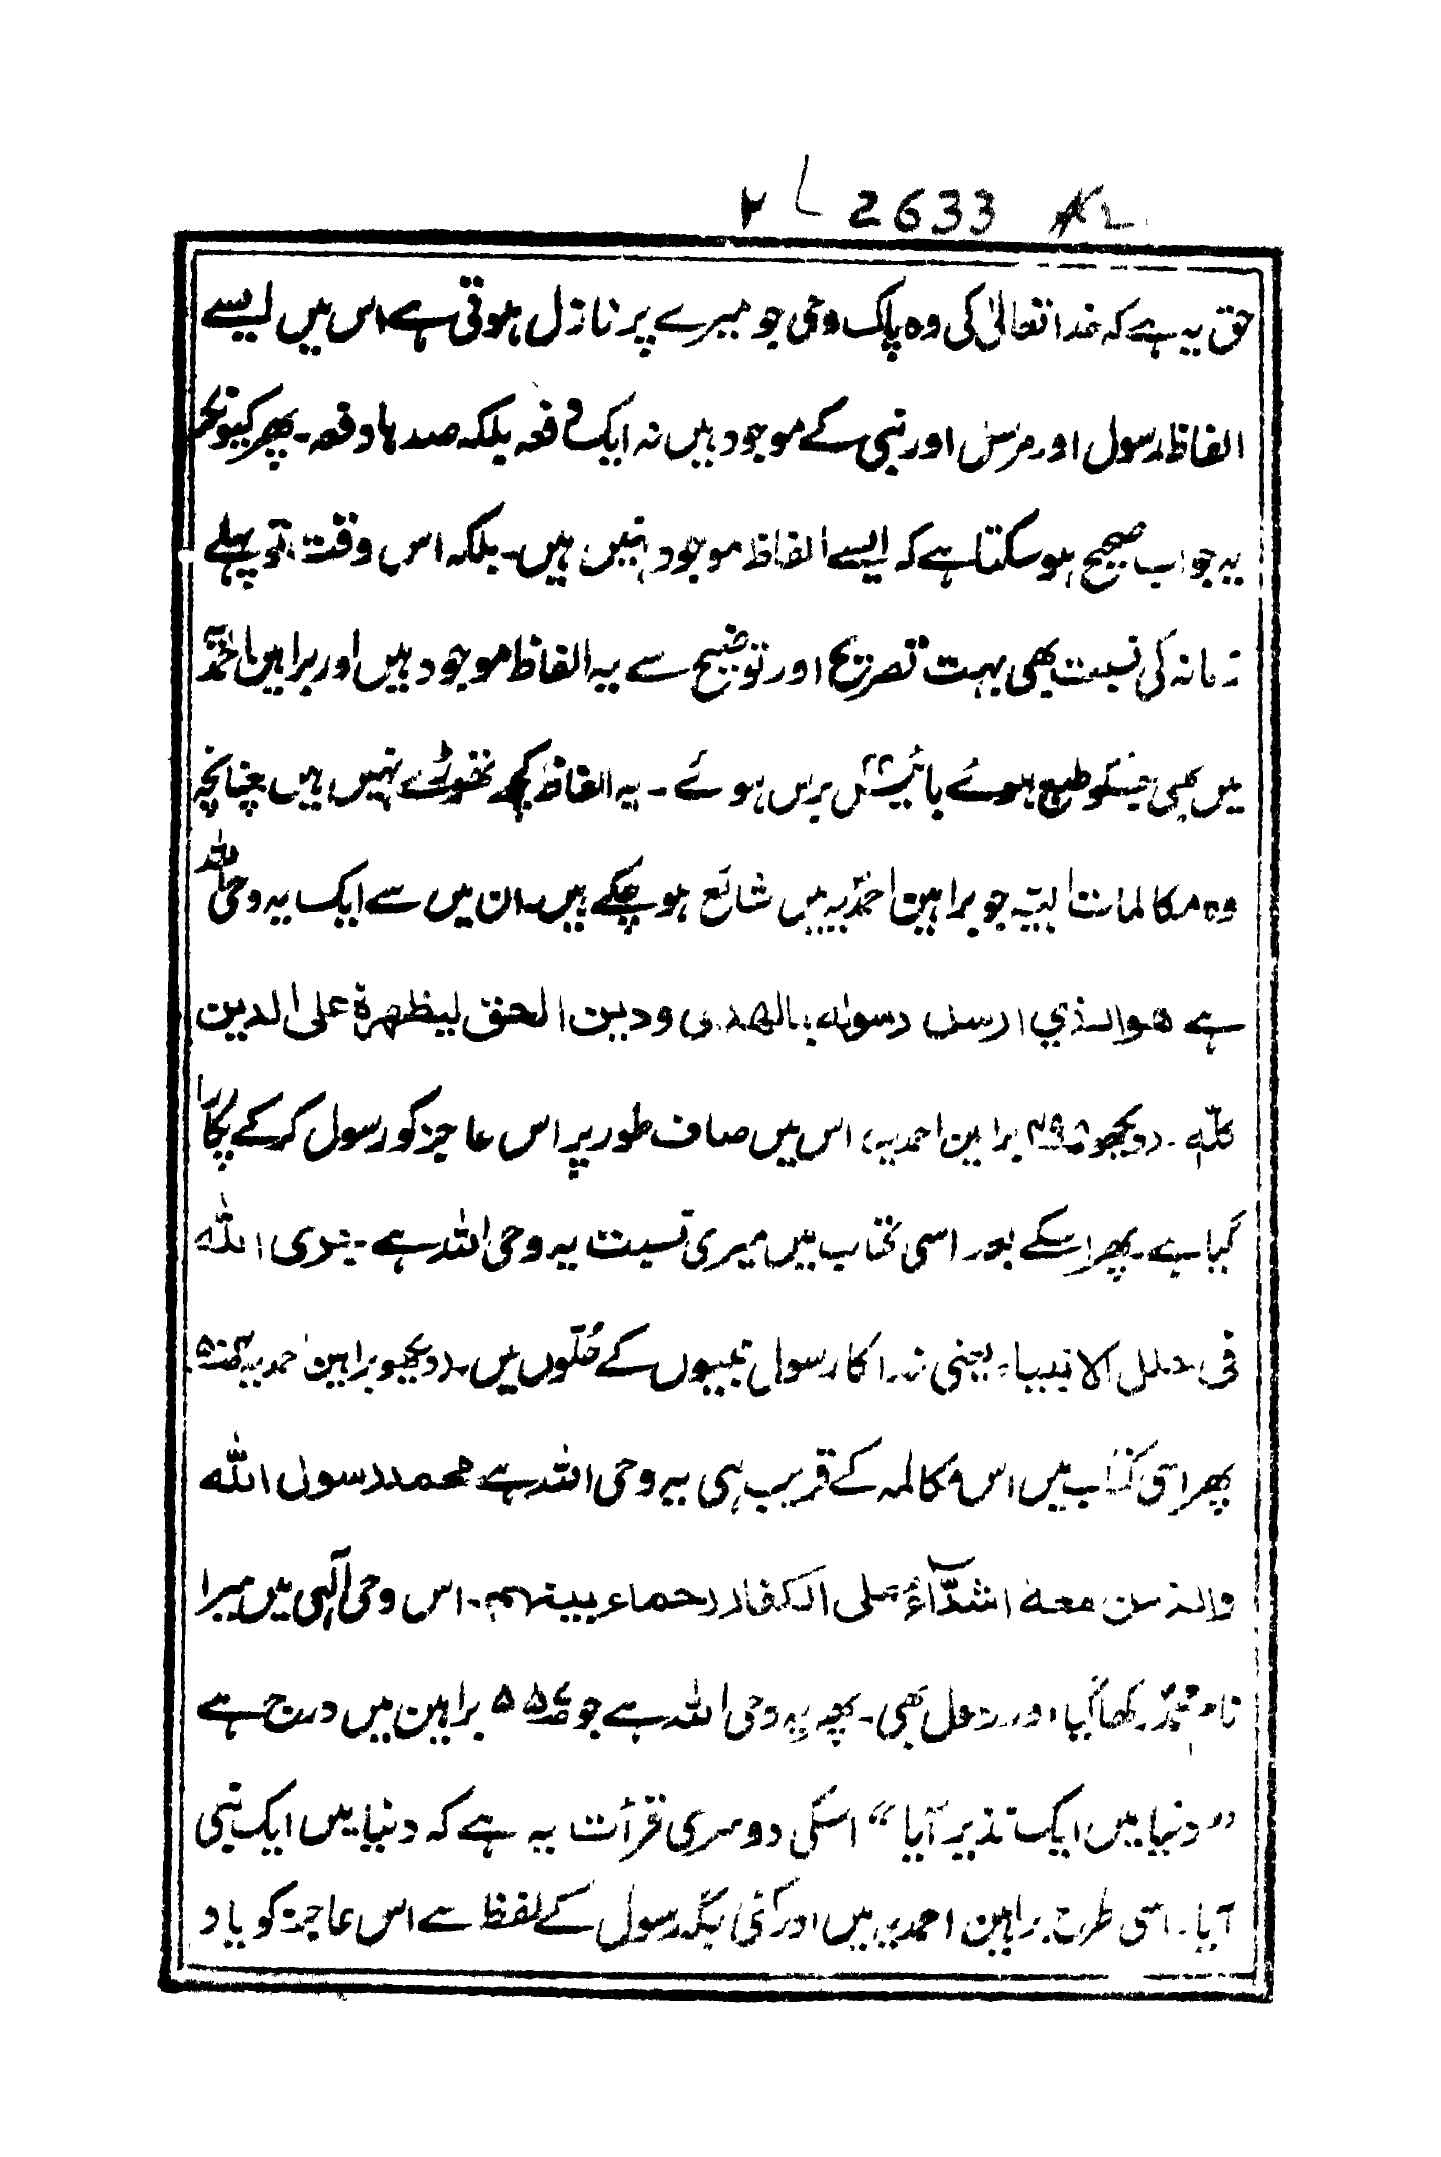 ۲ 2633
حق یہ ہے کہ خدا تعالیٰ کی وہ پاک وحی جو میرے پر نازل ہوتی ہے اس میں ایسے
الفاظ رسول اور مرسل اور نبی کے موجود ہیں نہ ایک دفعہ بلکہ صدہا دفعہ۔ پھر کیونکر
یہ جواب صحیح ہو سکتا ہے کہ ایسے الفاظ موجود نہیں ہیں۔ بلکہ اس وقت تو پہلے
زمانہ کی نسبت بھی بہت تصریح اور توضیح سے یہ الفاظ موجود ہیں اور براہین احمدیہ
میں بھی جسکو طبع ہوئے بائیس ۲۲ برس ہوئے ۔ یہ الفاظ کچھ تھوڑے نہیں ہیں چنانچہ
وہ مکالمات الہٰیہ جو براہین احمدیہ میں شائع ہو چکے ہیں۔ ان میں سے ایک یہ وحی اللہ
ہے ھوالذی ارسل رسولہ بالھدی ودین الحق لیظھرہ علی الدین
کلّہ ۔ دیکھو ۴۹۸ براہین احمدیہ، اس میں صاف طور پر اس عاجز کو رسول کرکے پکارا
گیا ہے۔ پھر اسکے بعد اسی کتاب میں میری نسبت یہ وحی اللہ ہے۔ جری اللہ
فی حلل الانبیاء یعنی خدا کا رسول نبیوں کے حُلّوں میں۔ دیکھو براہین احمدیہ ۵۰۴
پھر اسی کتاب میں اس مکالمہ کے قریب ہی یہ وحی اللہ ہے محمد رسول اللہ
والذین معہ اشدّآءُ علی الکفار رحماء بینھم۔ اس وحی الٰہی میں میرا
نام محمدؐ رکھا گیا اور رسول بھی۔ پھر یہ وحی اللہ ہے جو ۵۵۷ براہین میں درج ہے
”دنیا میں ایک نذیر آیا“ اسکی دوسری قرأت یہ ہے کہ دنیا میں ایک نبی
آیا۔ اسی طرح براہین احمدیہ میں اور کئی جگہ رسول کے لفظ سے اس عاجز کو یاد